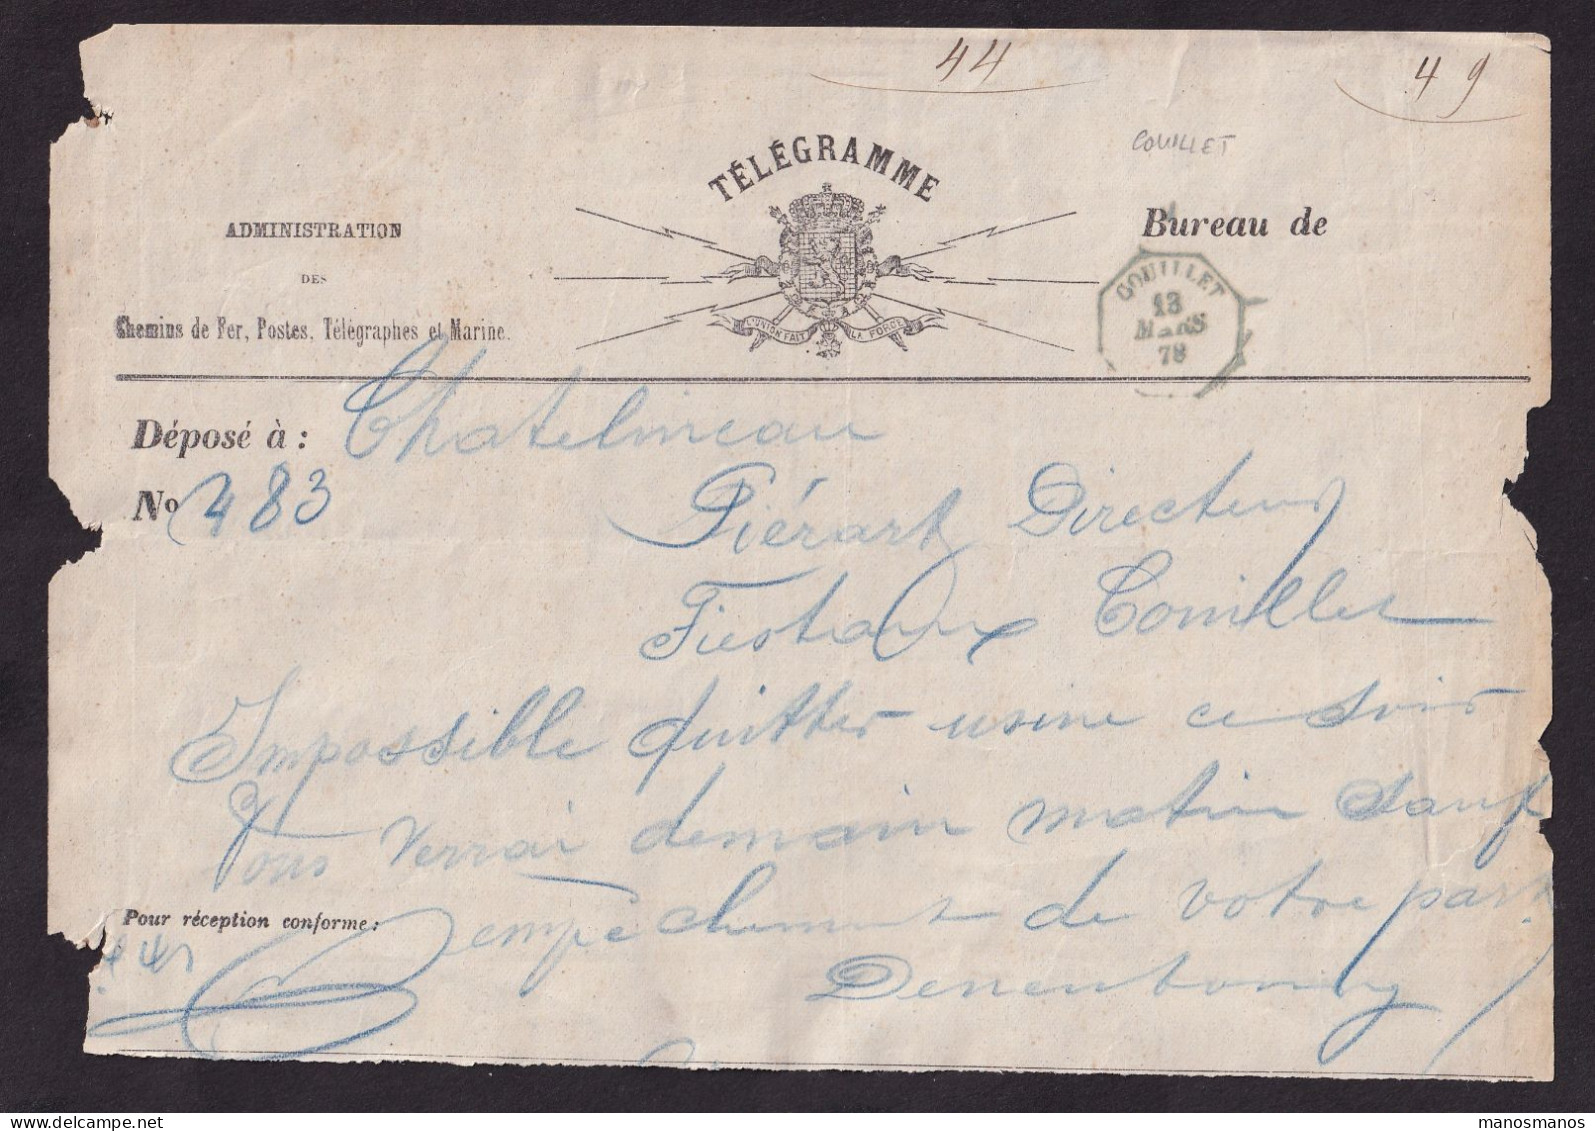 44
49
COUILLET
TÉLÉGRAMME
ADMINISTRATION
DES
Chemins de Fer, Postes, Télégraphes et Marine.
L'UNION FAIT LA FORCE
Bureau de
COUILLET
13
MARS
78
Déposé à : Chatelineau
No 483
Piérart Directeur
Fiestaux Couillet
Impossible quitter usine ce soir
Vous verrai demain matin sauf
empêchement de votre part
Pour réception conforme :
manosmanos